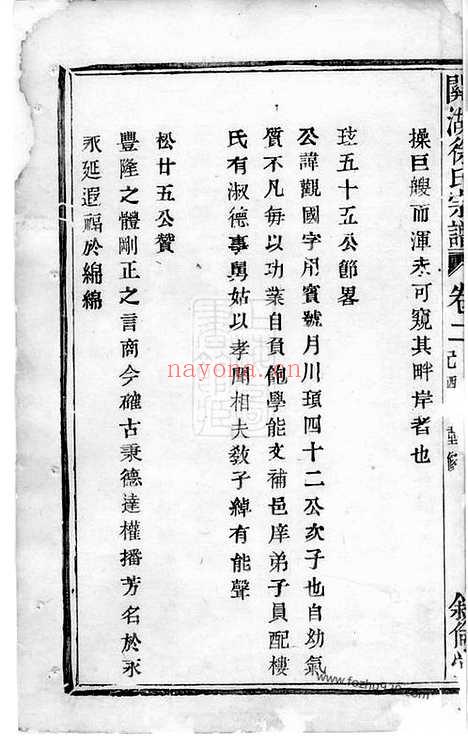 闗湖徐氏宗譜 卷二 己酉重修 敘倫堂
操巨艘而渾未可窺其畔岸者也
珪五十五公節畧
公諱觀國字用賓號月川頊四十二公次子也自幼氣
質不凡每以功業自負飽學能文補邑庠弟子員配樓
氏有淑德事舅姑以孝聞相夫敎子綽有能聲
松廿五公贊
豐隆之體剛正之言商今確古秉德達權播芳名於永
永延遐福於綿綿
nayona.cn
www.fozhu920.com